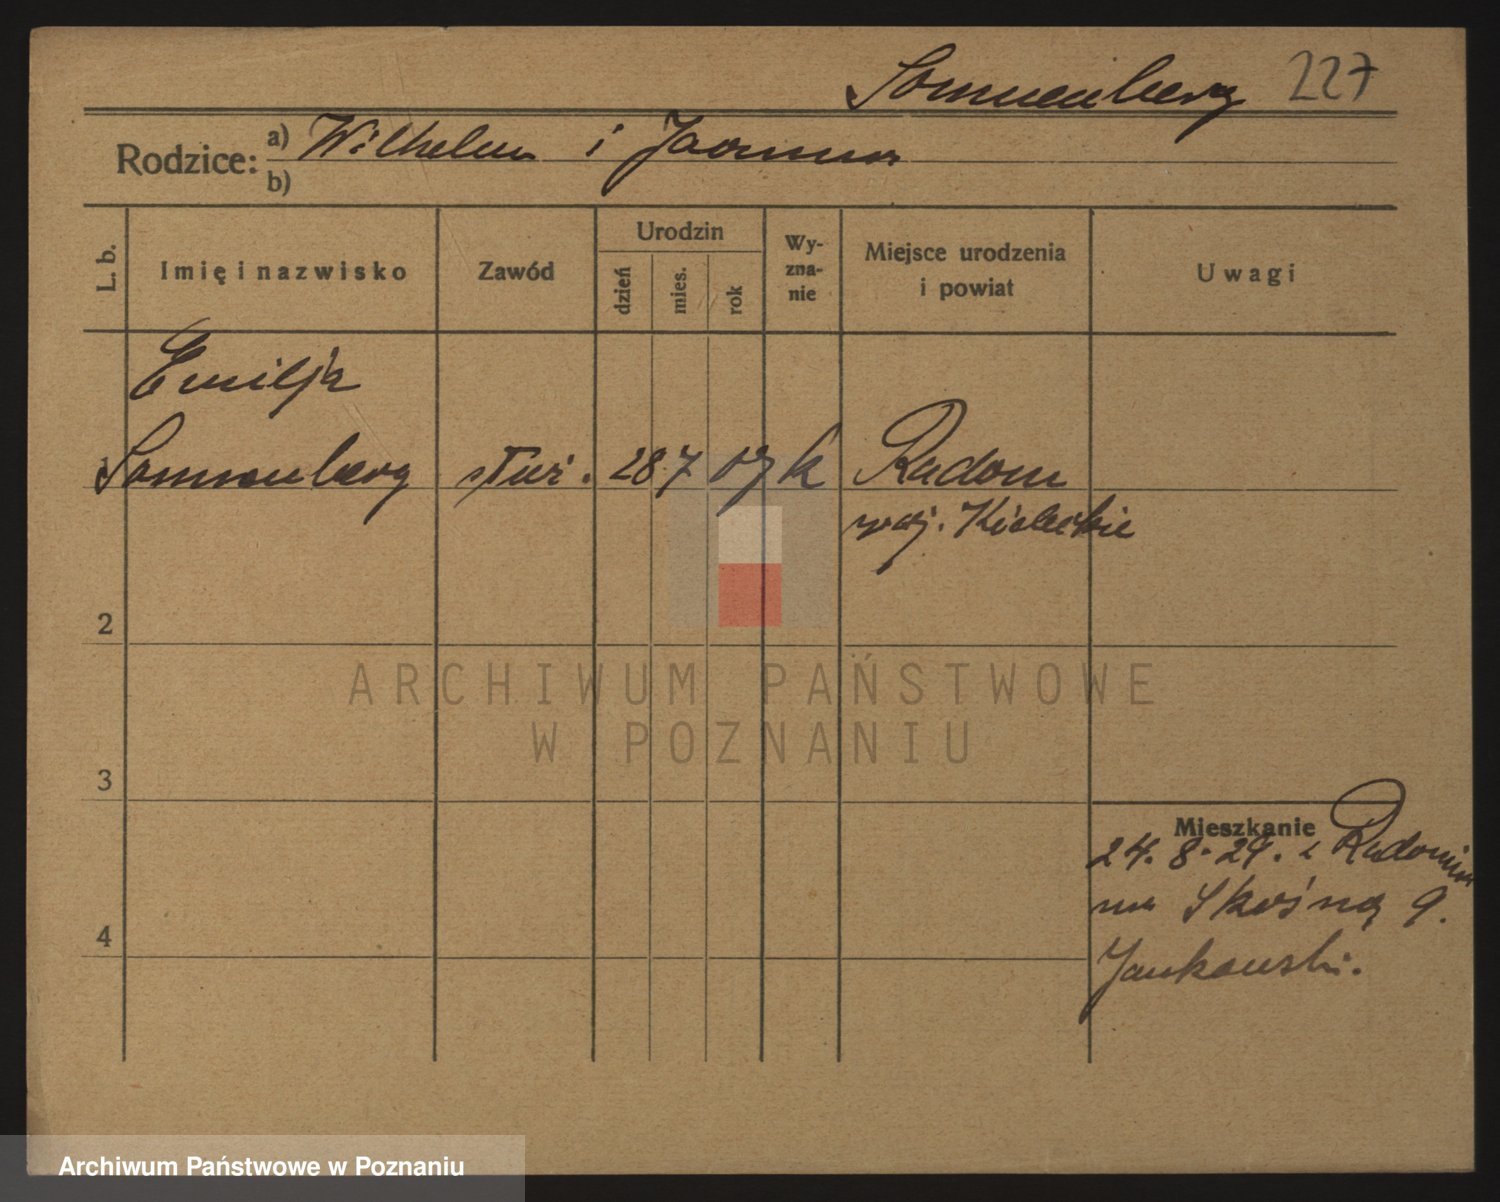 Sonnenberg 227
Rodzice: a) Wilhelm i Joanna
b)
L. b.
Imię i nazwisko
Zawód
Urodzin
dzień
mies.
rok
Wy-
zna-
nie
Miejsce urodzenia
i powiat
Uwagi
Emilja
Sonnenberg służ. 28 7 07 k Radom
woj. Kieleckie
2
3
4
Mieszkanie
24. 8. 29. z Radomia
na Skośną 9.
Jankowski.
ARCHIWUM PAŃSTWOWE
W POZNANIU
Archiwum Państwowe w Poznaniu